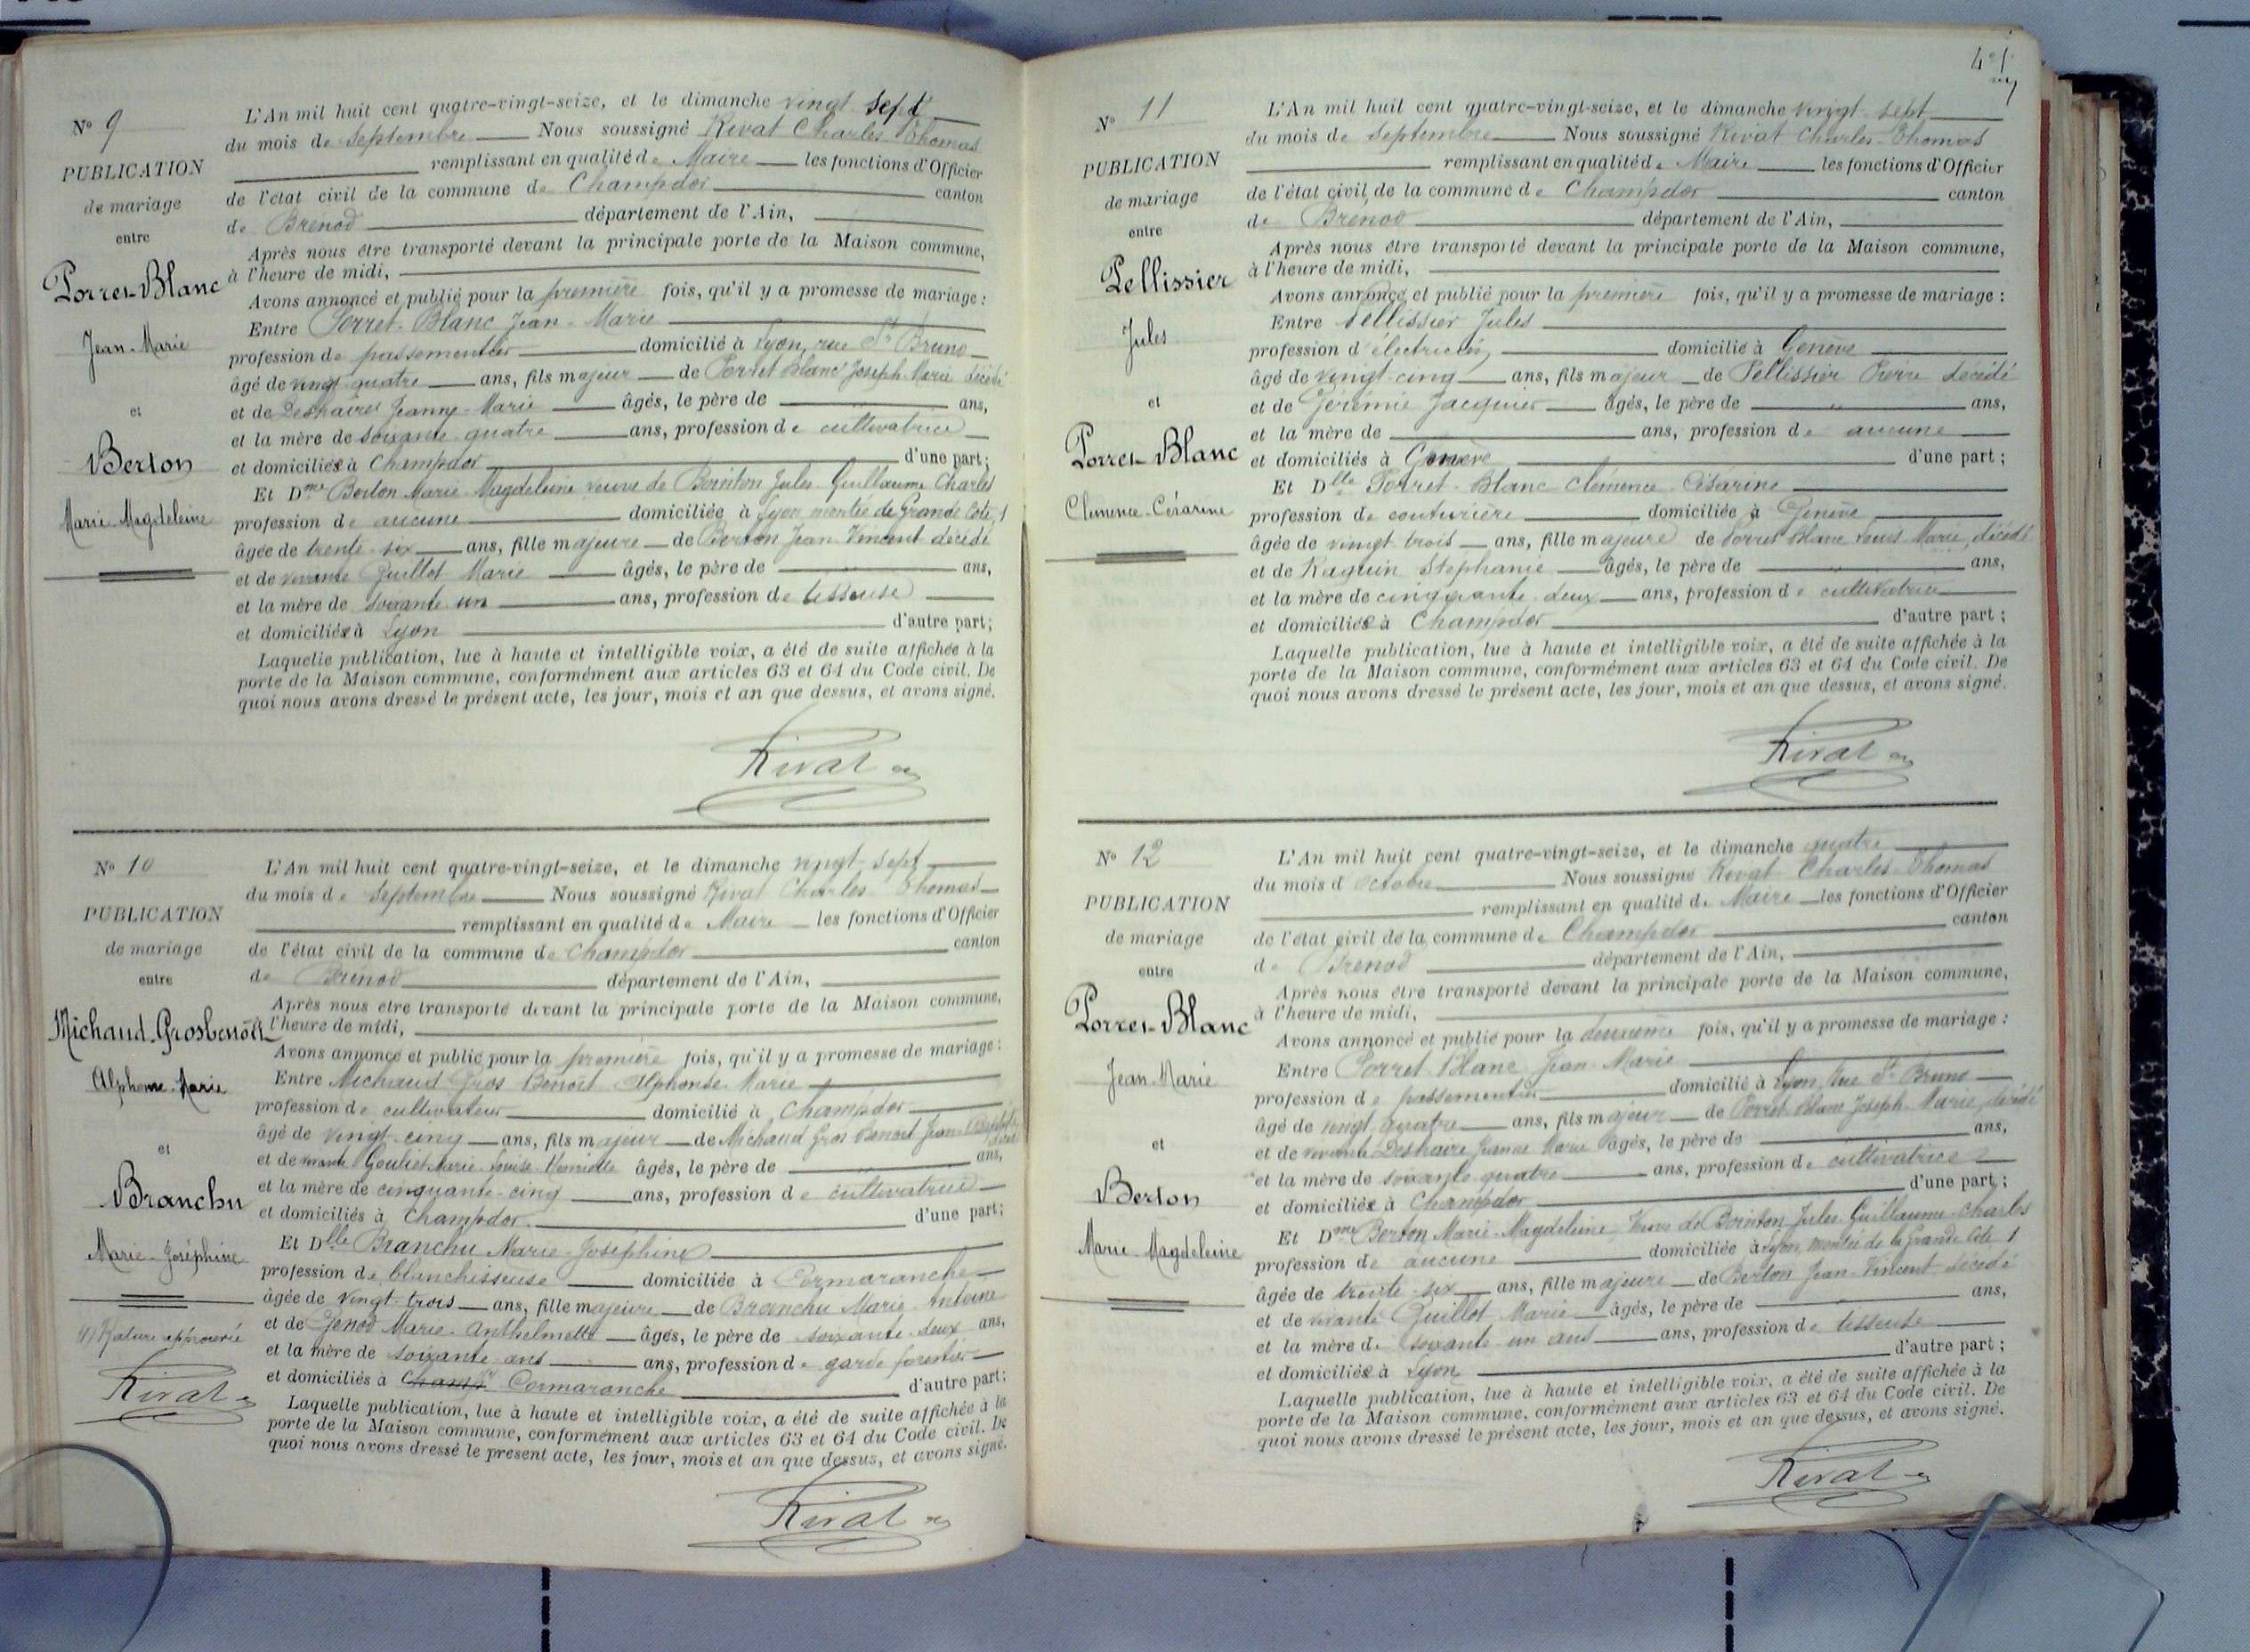 N° 9
PUBLICATION
de mariage
entre
Porret-Blanc
Jean-Marie
et
Berton
Marie-Magdeleine
L'An mil huit cent quatre-vingt-seize, et le dimanche vingt-sept
du mois de septembre Nous soussigné Rivat Charles Thomas
remplissant en qualité de Maire les fonctions d'Officier
de l'état civil de la commune de Champdor canton
de Brenod département de l'Ain,
Après nous être transporté devant la principale porte de la Maison commune,
à l'heure de midi,
Avons annoncé et publié pour la première fois, qu'il y a promesse de mariage :
Entre Porret-Blanc Jean-Marie
profession de passementier domicilié à Lyon, rue St Bruno
âgé de vingt quatre ans, fils majeur de Porret Blanc Joseph Marie décédé
et de Deshaires Jeanne-Marie âgés, le père de ans,
et la mère de soixante quatre ans, profession de cultivatrice
et domiciliés à Champdor d'une part ;
Et Dme Berton Marie-Magdeleine veuve de Bointon Jules Guillaume Charles
profession de aucune domiciliée à Lyon, montée de Grande Côte, 1
âgée de trente-six ans, fille majeure de Berton Jean-Vincent décédé
et de vivante Quillot Marie âgés, le père de ans,
et la mère de soixante un ans, profession de tisseuse
et domiciliés à Lyon d'autre part ;
Laquelle publication, lue à haute et intelligible voix, a été de suite affichée à la
porte de la Maison commune, conformément aux articles 63 et 64 du Code civil. De
quoi nous avons dressé le présent acte, les jour, mois et an que dessus, et avons signé.
Rivat
N° 10
PUBLICATION
de mariage
entre
Michaud-Grosbenoit
Alphonse-Marie
et
Branchu
Marie-Joséphine
(1) Rature approuvée
Rivat
L'An mil huit cent quatre-vingt-seize, et le dimanche vingt-sept
du mois de septembre Nous soussigné Rivat Charles Thomas
remplissant en qualité de Maire les fonctions d'Officier
de l'état civil de la commune de Champdor canton
de Brenod département de l'Ain,
Après nous être transporté devant la principale porte de la Maison commune,
à l'heure de midi,
Avons annoncé et publié pour la première fois, qu'il y a promesse de mariage :
Entre Michaud Gros Benoit Alphonse Marie
profession de cultivateur domicilié à Champdor
âgé de vingt-cinq ans, fils majeur de Michaud Gros Benoit Jean-Baptiste décédé
et de vivante Gouliet Marie Louise Henriette âgés, le père de ans,
et la mère de cinquante-cinq ans, profession de cultivatrice
et domiciliés à Champdor d'une part ;
Et Dlle Branchu Marie-Joséphine
profession de blanchisseuse domiciliée à Cormaranche
âgée de vingt-trois ans, fille majeure de Branchu Marie Antoine
et de Genod Marie-Anthelmette âgés, le père de soixante-deux ans,
et la mère de soixante ans ans, profession de garde forestier
et domiciliés à Champr Cormaranche d'autre part ;
Laquelle publication, lue à haute et intelligible voix, a été de suite affichée à la
porte de la Maison commune, conformément aux articles 63 et 64 du Code civil. De
quoi nous avons dressé le présent acte, les jour, mois et an que dessus, et avons signé.
Rivat
N° 11
PUBLICATION
de mariage
entre
Pellissier
Jules
et
Porret-Blanc
Clémence-Césarine
L'An mil huit cent quatre-vingt-seize, et le dimanche vingt-sept
du mois de septembre Nous soussigné Rivat Charles-Thomas
remplissant en qualité de Maire les fonctions d'Officier
de l'état civil de la commune de Champdor canton
de Brenod département de l'Ain,
Après nous être transporté devant la principale porte de la Maison commune,
à l'heure de midi,
Avons annoncé et publié pour la première fois, qu'il y a promesse de mariage :
Entre Pellissier Jules
profession d'électricien domicilié à Genève
âgé de vingt-cinq ans, fils majeur de Pellissier Pierre décédé
et de Jérémie Jacquier âgés, le père de ans,
et la mère de ans, profession de aucune
et domiciliés à Genève d'une part ;
Et Dlle Porret-Blanc Clémence-Césarine
profession de couturière domiciliée à Genève
âgée de vingt-trois ans, fille majeure de Porret Blanc Louis Marie, décédé
et de Raquin Stephanie âgés, le père de ans,
et la mère de cinquante-deux ans, profession de cultivatrice
et domiciliés à Champdor d'autre part ;
Laquelle publication, lue à haute et intelligible voix, a été de suite affichée à la
porte de la Maison commune, conformément aux articles 63 et 64 du Code civil. De
quoi nous avons dressé le présent acte, les jour, mois et an que dessus, et avons signé.
Rivat
N° 12
PUBLICATION
de mariage
entre
Porret-Blanc
Jean-Marie
et
Berton
Marie-Magdeleine
L'An mil huit cent quatre-vingt-seize, et le dimanche quatre
du mois d'octobre Nous soussigné Rivat Charles-Thomas
remplissant en qualité de Maire les fonctions d'Officier
de l'état civil de la commune de Champdor canton
de Brenod département de l'Ain,
Après nous être transporté devant la principale porte de la Maison commune,
à l'heure de midi,
Avons annoncé et publié pour la deuxième fois, qu'il y a promesse de mariage :
Entre Porret Blanc Jean-Marie
profession de passementier domicilié à Lyon, rue St Bruno
âgé de vingt quatre ans, fils majeur de Porret Blanc Joseph Marie, décédé
et de vivante Deshaire Jeanne Marie âgés, le père de ans,
et la mère de soixante quatre ans, profession de cultivatrice
et domiciliés à Champdor d'une part ;
Et Dme Berton Marie-Magdeleine, Veuve de Bointon Jules Guillaume Charles
profession de aucune domiciliée à Lyon, montée de la Grande Côte 1
âgée de trente-six ans, fille majeure de Berton Jean-Vincent décédé
et de vivante Quillot Marie âgés, le père de ans,
et la mère de soixante un ans ans, profession de tisseuse
et domiciliés à Lyon d'autre part ;
Laquelle publication, lue à haute et intelligible voix, a été de suite affichée à la
porte de la Maison commune, conformément aux articles 63 et 64 du Code civil. De
quoi nous avons dressé le présent acte, les jour, mois et an que dessus, et avons signé.
Rivat